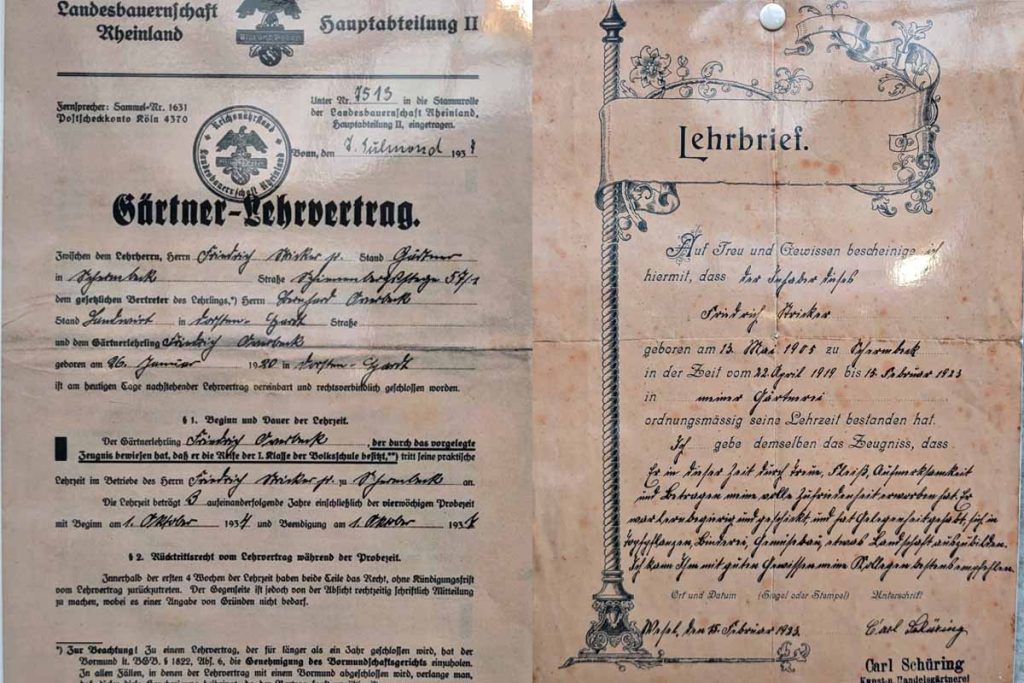 Landesbauernschaft
Rheinland
Hauptabteilung II
Fernsprecher: Sammel-Nr. 1631
Postscheckkonto Köln 4370
Unter Nr. 7513 in die Stammrolle
der Landesbauernschaft Rheinland,
Hauptabteilung II, eingetragen.
Reichsnährstand
Landesbauernschaft Rheinland
Bonn, den 7. Julmond 193
Gärtner-Lehrvertrag.
Zwischen dem Lehrherrn, Herrn Friedrich Stricker jr. Stand Gärtner
in Schermbeck Straße 57/1
dem gesetzlichen Vertreter des Lehrlings,*) Herrn Bernhard Overbeck
Stand Landwirt in Dorsten-Hardt Straße
und dem Gärtnerlehrling Friedrich Overbeck
geboren am 26. Januar 1920 in Dorsten-Hardt
ist am heutigen Tage nachstehender Lehrvertrag vereinbart und rechtsverbindlich geschlossen worden.
§ 1. Beginn und Dauer der Lehrzeit.
Der Gärtnerlehrling Friedrich Overbeck, der durch das vorgelegte
Zeugnis bewiesen hat, daß er die Reife der I. Klasse der Volksschule besitzt,**) tritt seine praktische
Lehrzeit im Betriebe des Herrn Friedrich Stricker jr. zu Schermbeck an.
Die Lehrzeit beträgt 3 aufeinanderfolgende Jahre einschließlich der vierwöchigen Probezeit
mit Beginn am 1. Oktober 193 und Beendigung am 1. Oktober 193
§ 2. Rücktrittsrecht vom Lehrvertrag während der Probezeit.
Innerhalb der ersten 4 Wochen der Lehrzeit haben beide Teile das Recht, ohne Kündigungsfrist
vom Lehrvertrag zurückzutreten. Der Gegenseite ist jedoch von der Absicht rechtzeitig schriftlich Mitteilung
zu machen, wobei es einer Angabe von Gründen nicht bedarf.
*) Zur Beachtung! Zu einem Lehrvertrag, der für länger als ein Jahr geschlossen wird, hat der
Vormund lt. BGB. § 1822, Abs. 6, die Genehmigung des Vormundschaftsgerichts einzuholen.
In allen Fällen, in denen der Lehrvertrag mit einem Vormund abgeschlossen wird, verlange man,
Lehrbrief.
Auf Treu und Gewissen bescheinige ich
hiermit, dass der Inhaber dieses
Friedrich Stricker
geboren am 13. Mai 1905 zu Schermbeck
in der Zeit vom 22. April 1919 bis 15. Februar 1923
in meiner Gärtnerei
ordnungsmässig seine Lehrzeit bestanden hat.
Ich gebe demselben das Zeugniss, dass
Er in dieser Zeit durch Treue, Fleiß, Aufmerksamkeit
und Betragen meine volle Zufriedenheit erworben hat. Er
war lernbegierig und geschickt, und hat Gelegenheit gehabt, sich in
Topfpflanzen, Binderei, Gemüsebau, etwas Landschaft auszubilden.
Ich kann Ihm mit guten Gewissen meine Kollegen bestens empfehlen.
Ort und Datum (Siegel oder Stempel) Unterschrift
Wesel, den 15. Februar 1923. Carl Schüring
Carl Schüring
Kunst- u. Handelsgärtnerei